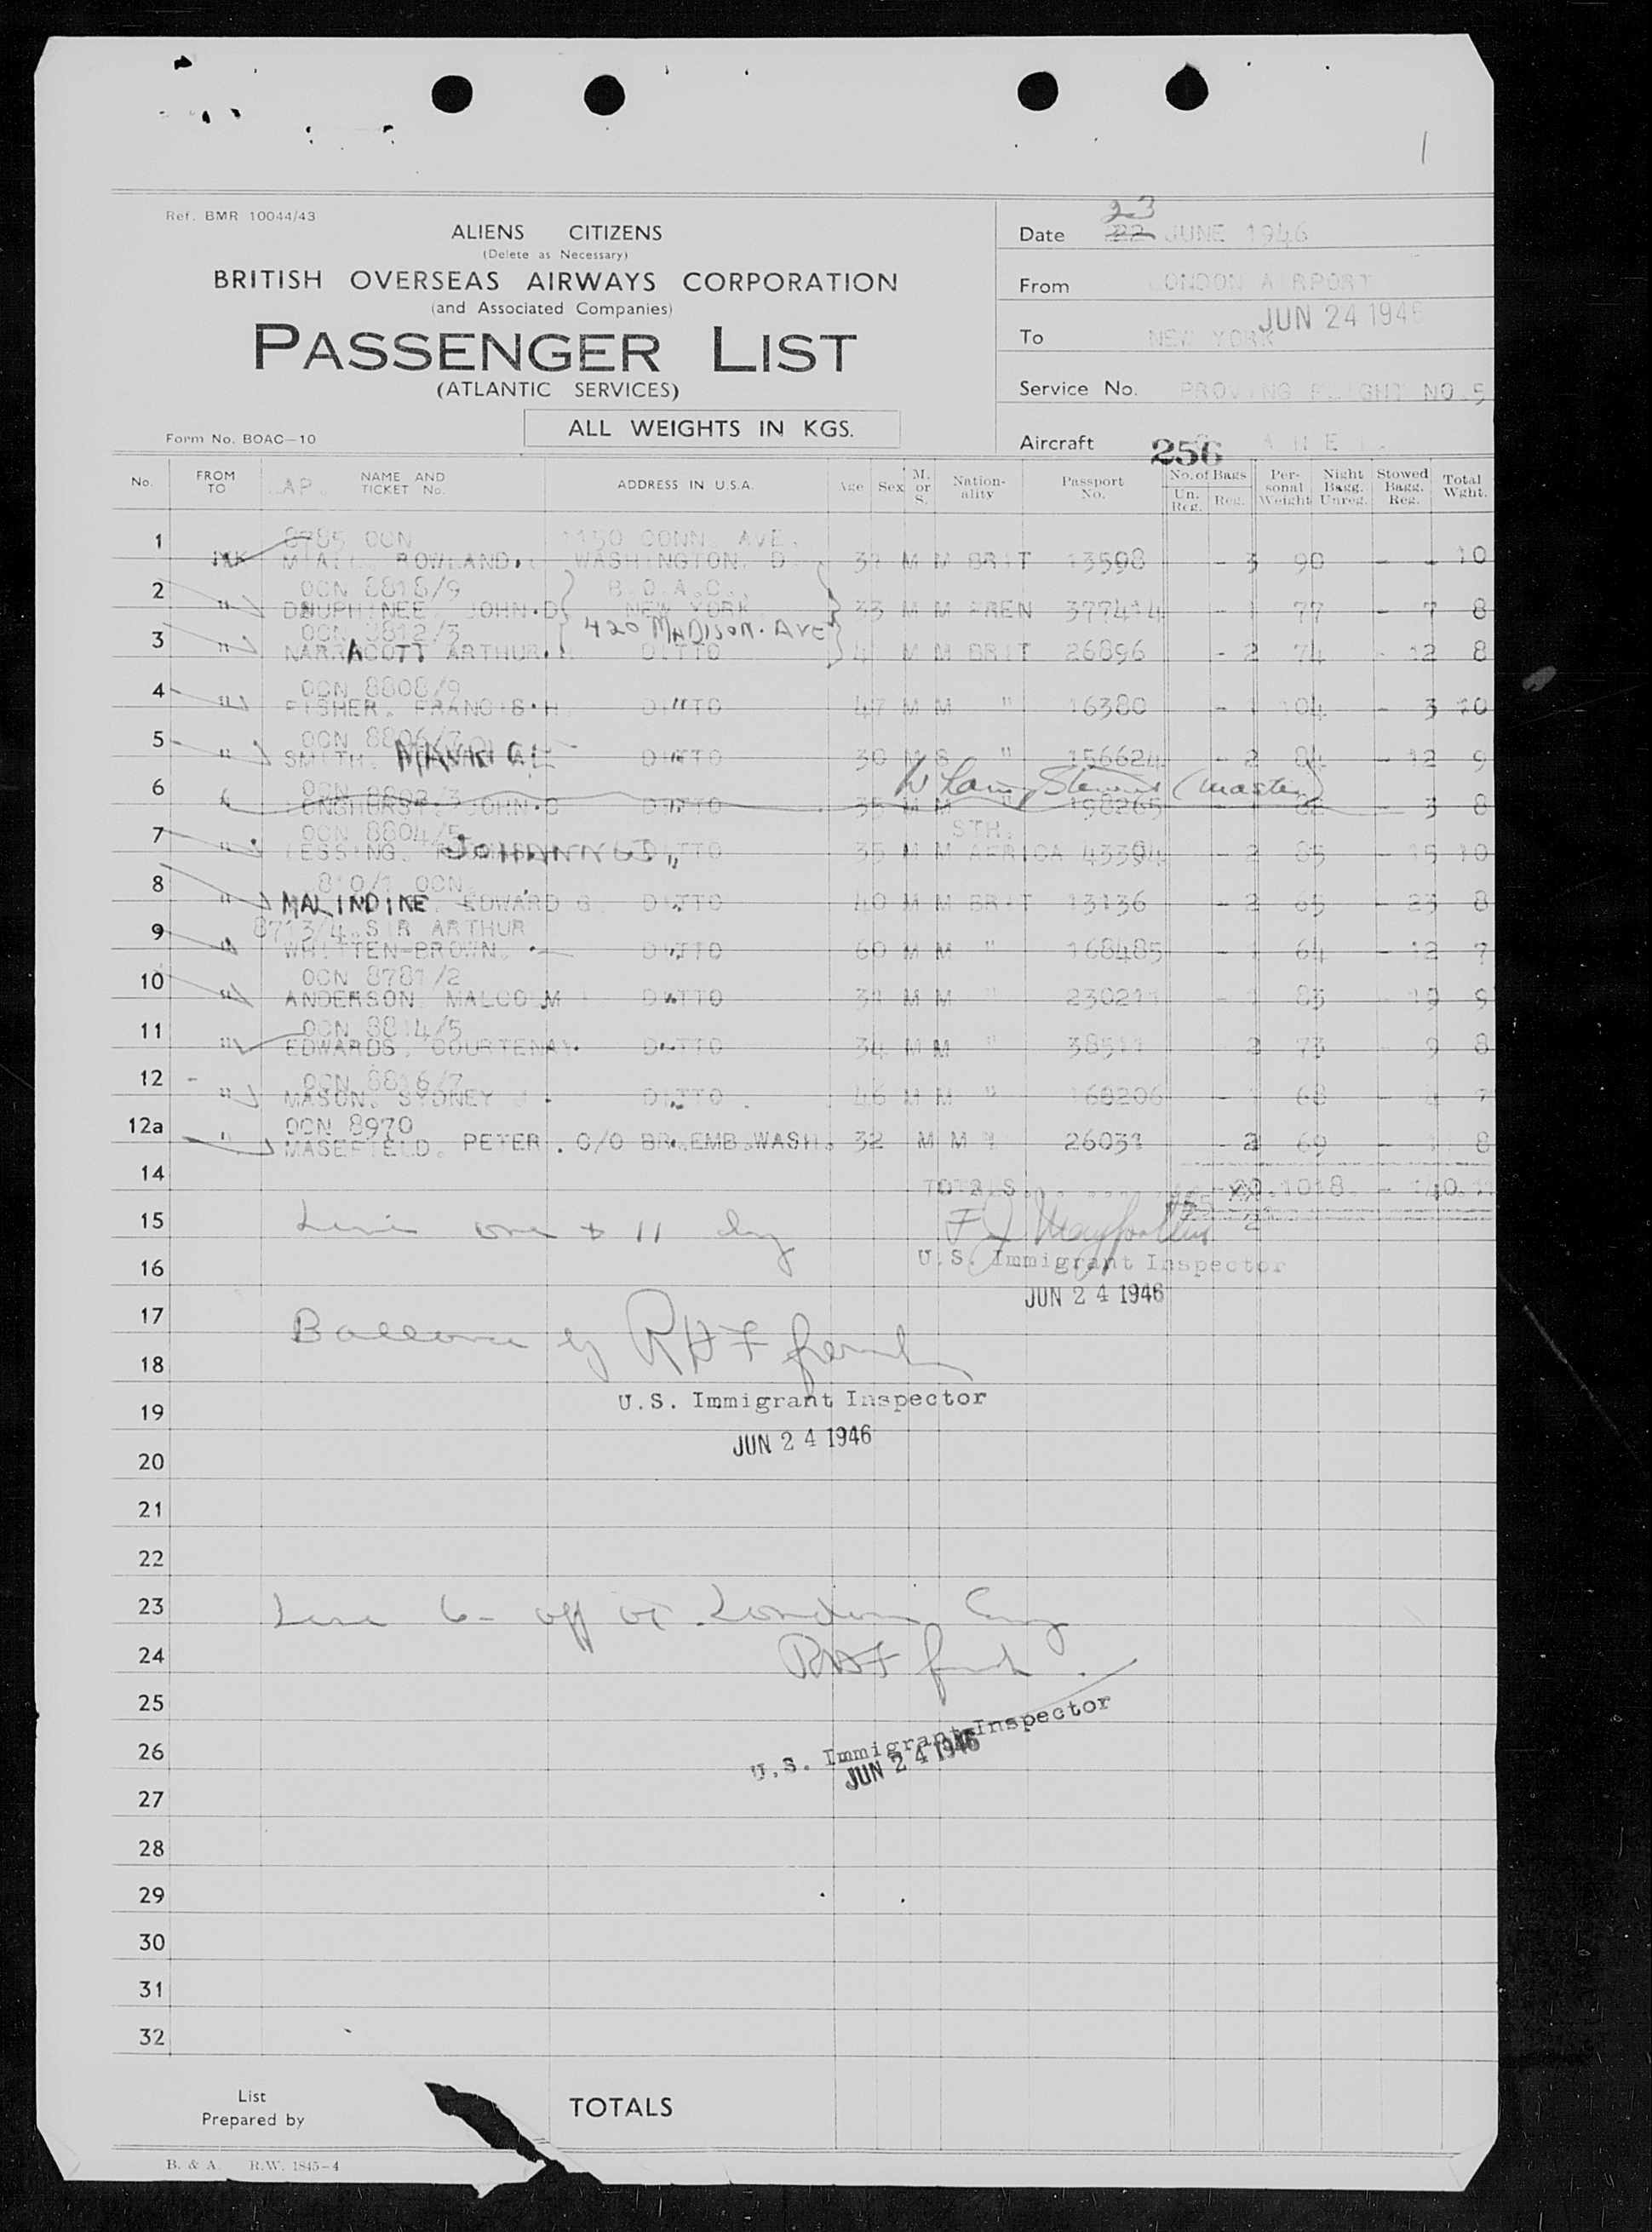 1
Ref. BMR 10044/43
ALIENS CITIZENS
(Delete as Necessary)
BRITISH OVERSEAS AIRWAYS CORPORATION
(and Associated Companies)
PASSENGER LIST
(ATLANTIC SERVICES)
ALL WEIGHTS IN KGS.
Form No. BOAC-10
23
Date 22 JUNE 1946
From LONDON AIRPORT
JUN 24 1946
To NEW YORK
Service No. PROVING FLIGHT NO 5
Aircraft
256
No. FROM TO NAME AND TICKET No. ADDRESS IN U.S.A. Age Sex M. or S. Nationality Passport No. No. of Bags Un. Reg. Reg. Personal Weight Night Bagg. Unreg. Stowed Bagg. Reg. Total Wght.
8785 OCN 1150 CONN. AVE.
1 MIALL ROWLAND. WASHINGTON. D 37 M M BRIT 13598 - 3 90 - - 10
OCN 8818/9 B.O.A.C.
2 " DAUPHINEE JOHN.D NEW YORK 33 M M FREN 377414 - 1 77 - 7 8
OCN 8812/3 420 MADISON. AVE
3 " NARRACOTT ARTHUR. DITTO 41 M M BRIT 26896 - 2 74 - 12 8
OCN 8808/9
4 " FISHER. FRANCIS.H DITTO 47 M M " 16380 - 1 104 - 3 10
OCN 8806/7
5 " SMITH. DITTO 30 M S " 156624 - 2 84 - 12 9
OCN 8802/3 (Master)
6 LONGHURST. JOHN.C DITTO 35 M M " 198265 - 82 - 3 8
OCN 8804/5 STH.
7 " LESSING. JOHANNUS DITTO 35 M M AFRICA 43394 - 2 85 - 15 10
810/1 OCN
8 " MALINDINE. EDWARD G. DITTO 40 M M BRIT 13136 - 2 65 - 23 8
8713/4. SIR ARTHUR
9 " WHITTEN-BROWN. DITTO 60 M M " 168485 - 1 64 - 12 7
OCN 8781/2
10 " ANDERSON. MALCOLM DITTO 31 M M " 230211 - 1 83 - 19 9
OCN 8814/5
11 " EDWARDS. COURTENAY. DITTO 34 M M " 38511 2 73 - 9 8
OCN 8816/7
12 " MASON. SYDNEY J. DITTO 46 M M " 168206 - 1 68 - 4 7
OCN 8970
12a " MASEFIELD. PETER. C/O BR. EMB. WASH. 32 M M " 26031 - 2 69 - 8
14 TOTALS - 20. 1018. -
15 Line one & 11 by F J
16 U.S. Immigrant Inspector
JUN 24 1946
17 Balance by RHF
18
U.S. Immigrant Inspector
19
JUN 24 1946
20
21
22
23 Line 6 - off at London Eng
24 RHF
25
U.S. Immigrant Inspector
26 JUN 24 1946
27
28
29
30
31
32
List Prepared by TOTALS
B. & A. R.W. 1845-4